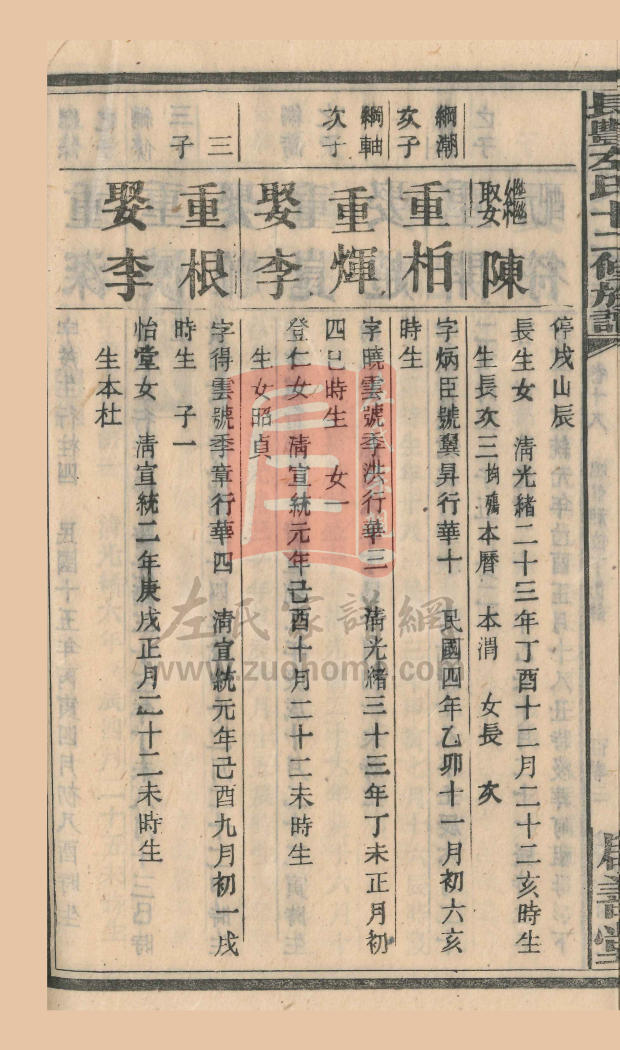 長豐左氏十二修族譜
停戌山辰
繼娶陳
長生女 清光緒二十三年丁酉十二月二十二亥時生
生長次三均殤本曆 本渭 女長 次
綱潮次子
重柏
字炳臣號翼昇行華十 民國四年乙卯十一月初六亥
時生
綱軸次子
重煇
字曉雲號季洪行華三 清光緒三十三年丁未正月初
四巳時生 女一
娶李
登仁女 清宣統元年己酉十月二十二未時生
生女昭貞
三子
重根
字得雲號季章行華四 清宣統元年己酉九月初一戌
時生 子一
娶李
怡堂女 清宣統二年庚戌正月二十二未時生
生本杜
左氏家譜網
www.zuohome.com